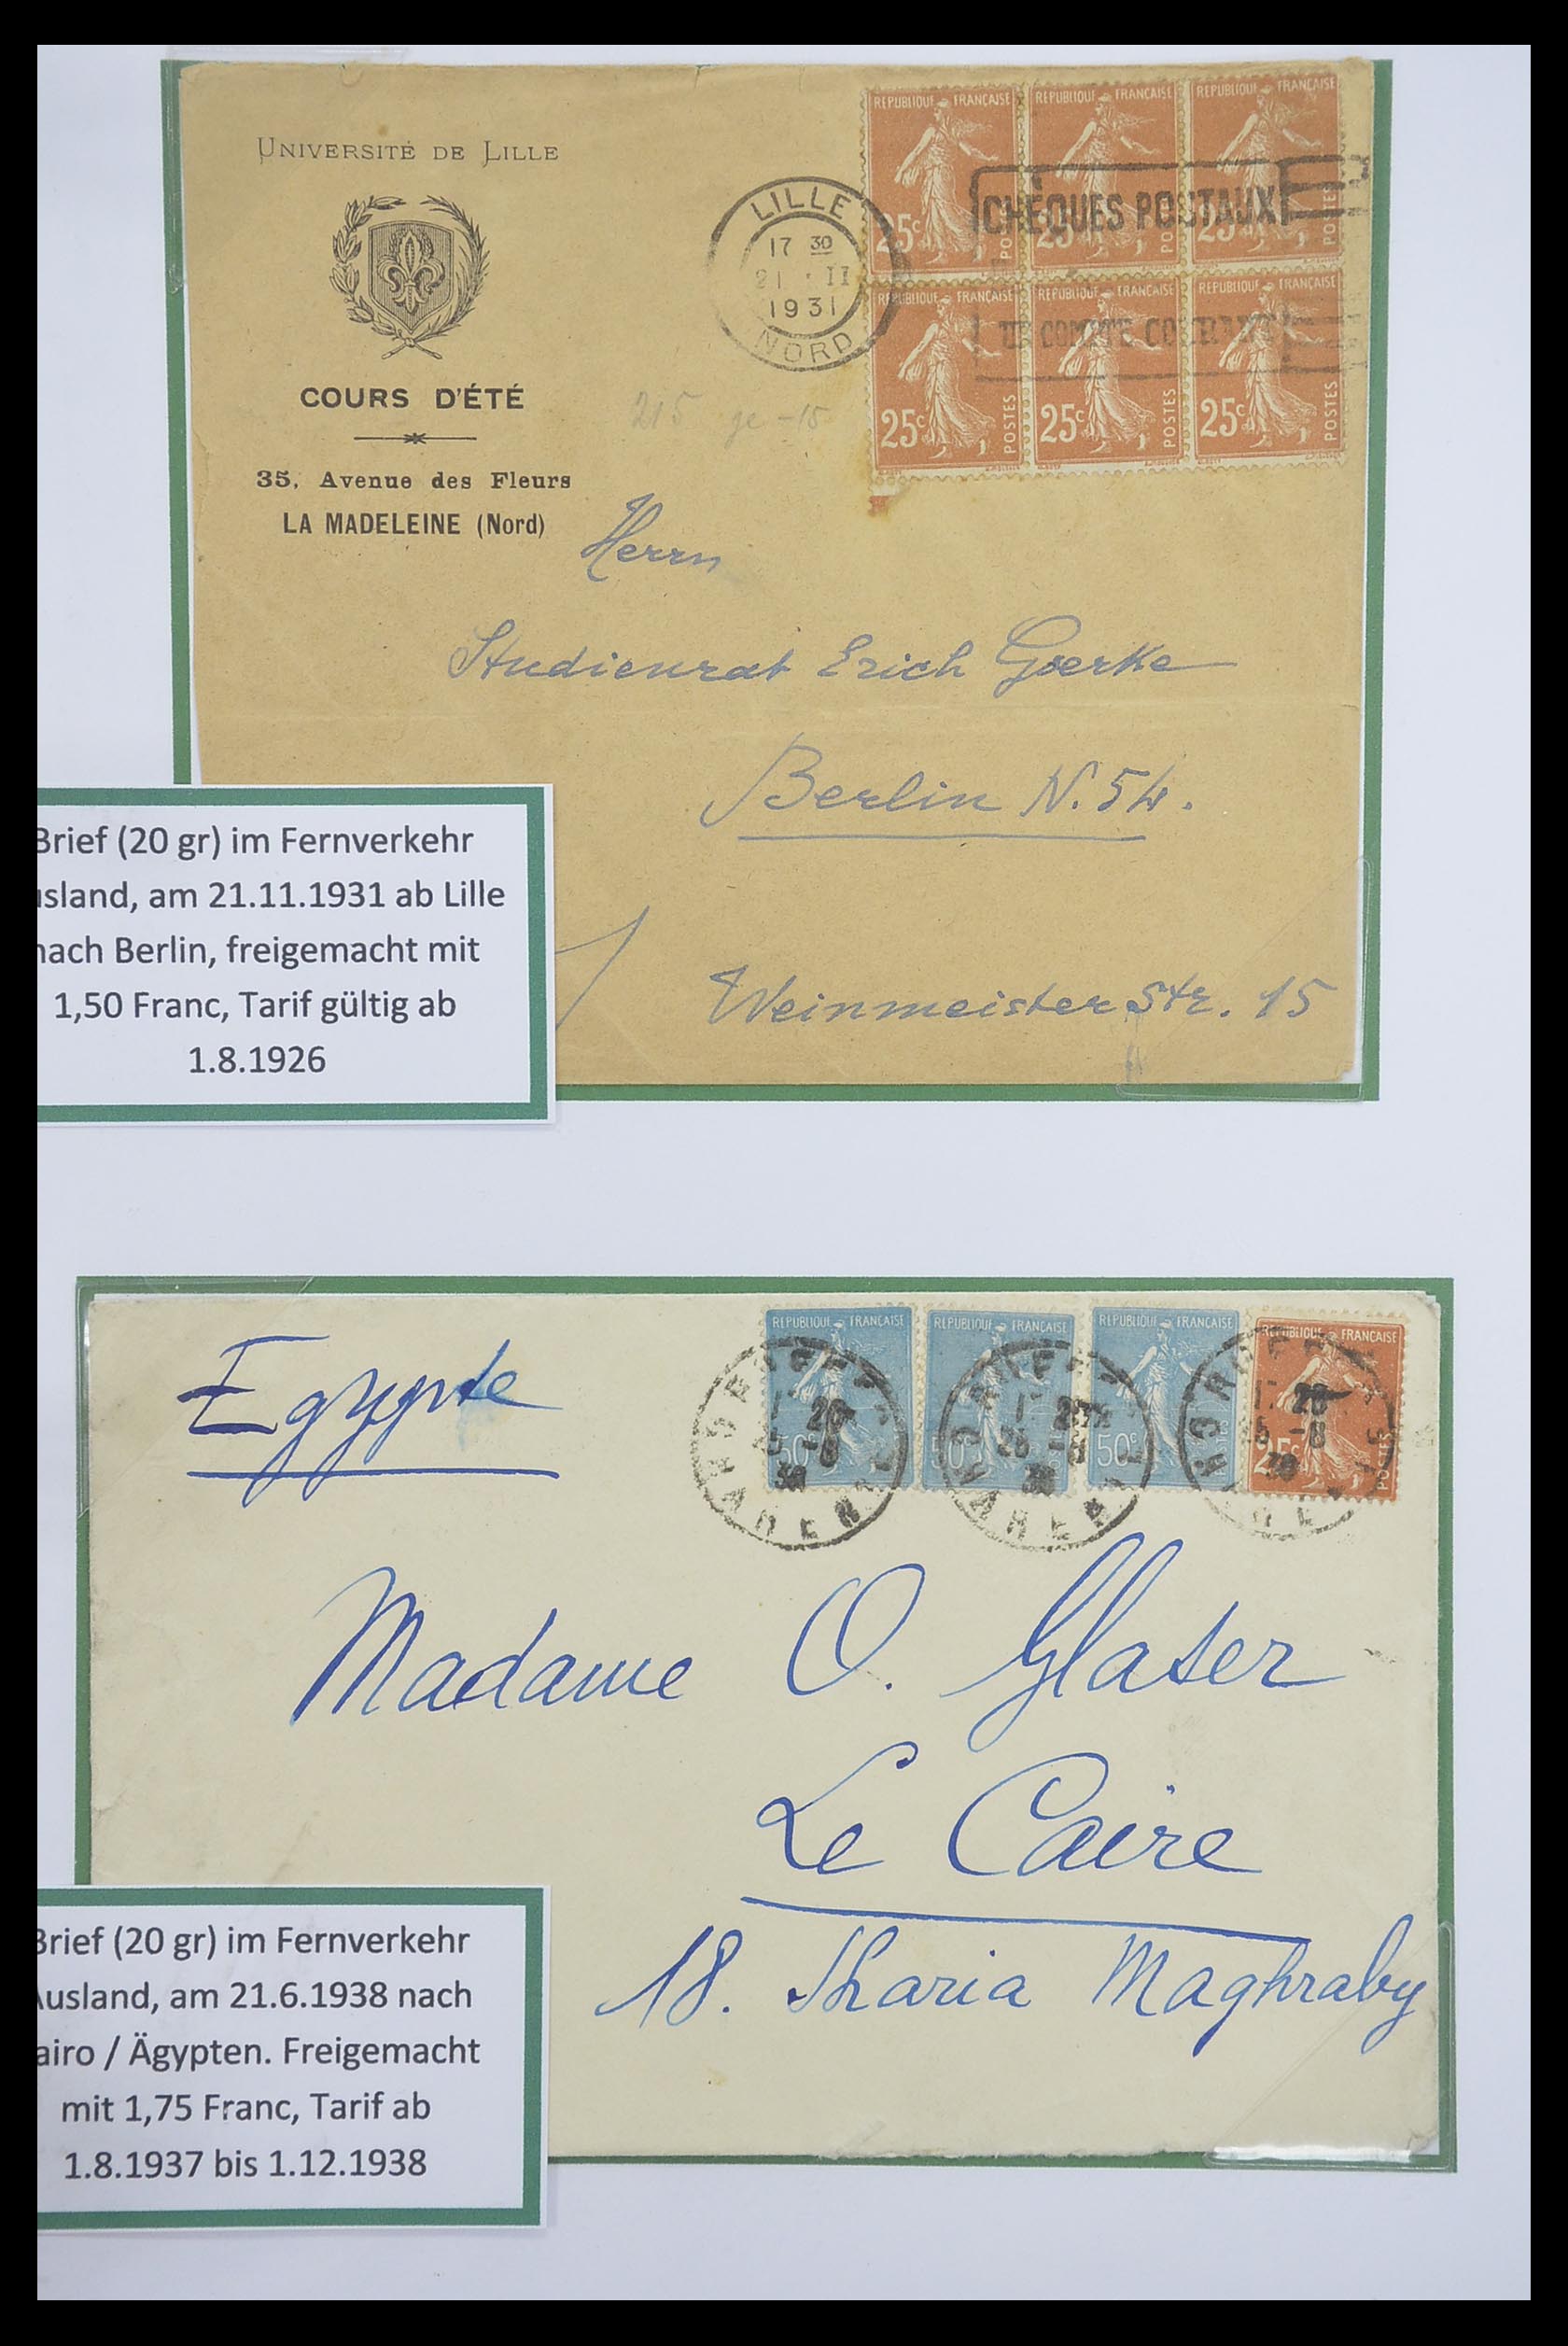 UNIVERSITÉ DE LILLE
COURS D'ÉTÉ
35, Avenue des Fleurs
LA MADELEINE (Nord)
LILLE
17 30
21 · II
1931
NORD
REPUBLIQUE FRANÇAISE REPUBLIQUE FRANÇAISE REPUBLIQUE FRANÇAISE
CHÈQUES POSTAUX
25c 25c 25c
POSTES
REPUBLIQUE FRANÇAISE REPUBLIQUE FRANÇAISE REPUBLIQUE FRANÇAISE
COMPTE COURANT
25c POSTES 25c POSTES 25c POSTES
215
Herrn
Studienrat Erich Goerke
Berlin N. 54.
Weinmeister Str. 15
Brief (20 gr) im Fernverkehr
usland, am 21.11.1931 ab Lille
nach Berlin, freigemacht mit
1,50 Franc, Tarif gültig ab
1.8.1926
REPUBLIQUE FRANÇAISE REPUBLIQUE FRANÇAISE REPUBLIQUE FRANÇAISE REPUBLIQUE FRANÇAISE
50c 50c 50c 25c
POSTES
Egypte
Madame O. Glaser
Le Caire
18. Sharia Maghraby
Brief (20 gr) im Fernverkehr
Ausland, am 21.6.1938 nach
airo / Ägypten. Freigemacht
mit 1,75 Franc, Tarif ab
1.8.1937 bis 1.12.1938